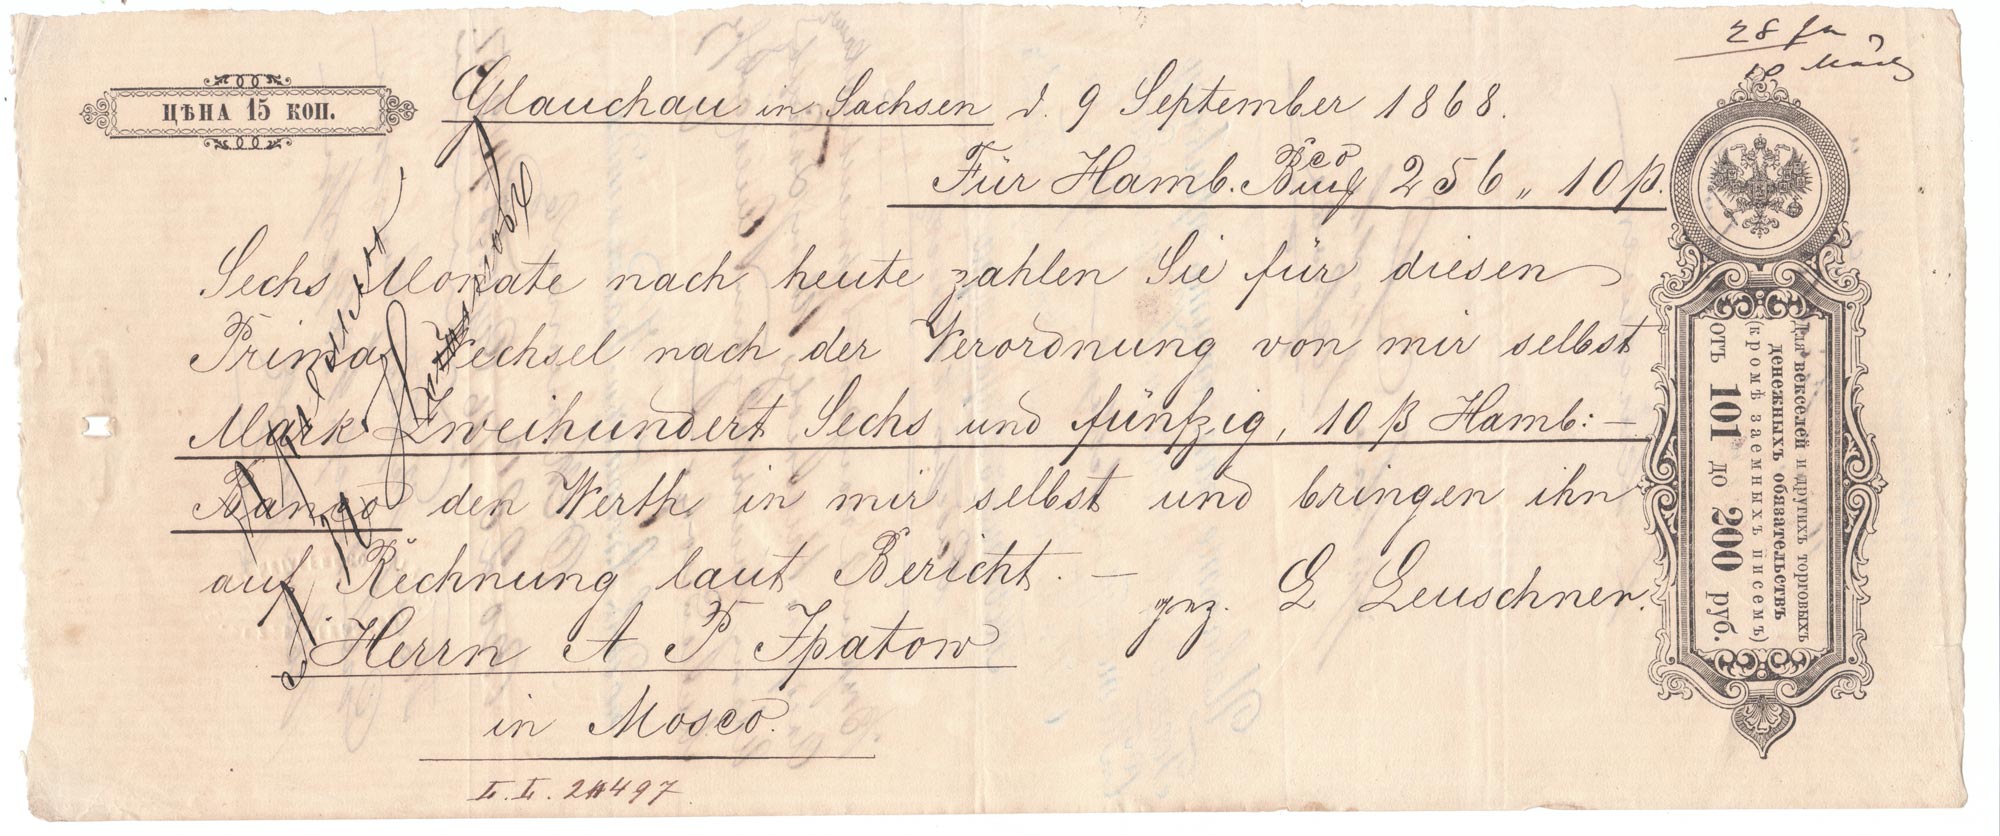 28
10 März
ЦѢНА 15 КОП.
Glauchau in Sachsen d. 9 September 1868.
Für Hamb. Bco 256 „ 10 ß.
Sechs Monate nach heute zahlen Sie für diesen
Prima Wechsel nach der Verordnung von mir selbst
Mark Zweihundert Sechs und fünfzig, 10 ß Hamb: –
Banco den Werth in mir selbst und bringen ihn
auf Rechnung laut Bericht. –
gez. L Leuschner.
Herrn A P Ipatow
in Mosco.
L. L. 24497
Для векселей и другихъ торговыхъ
денежныхъ обязательствъ
(кромѣ заемныхъ писемъ)
отъ 101 до 200 руб.